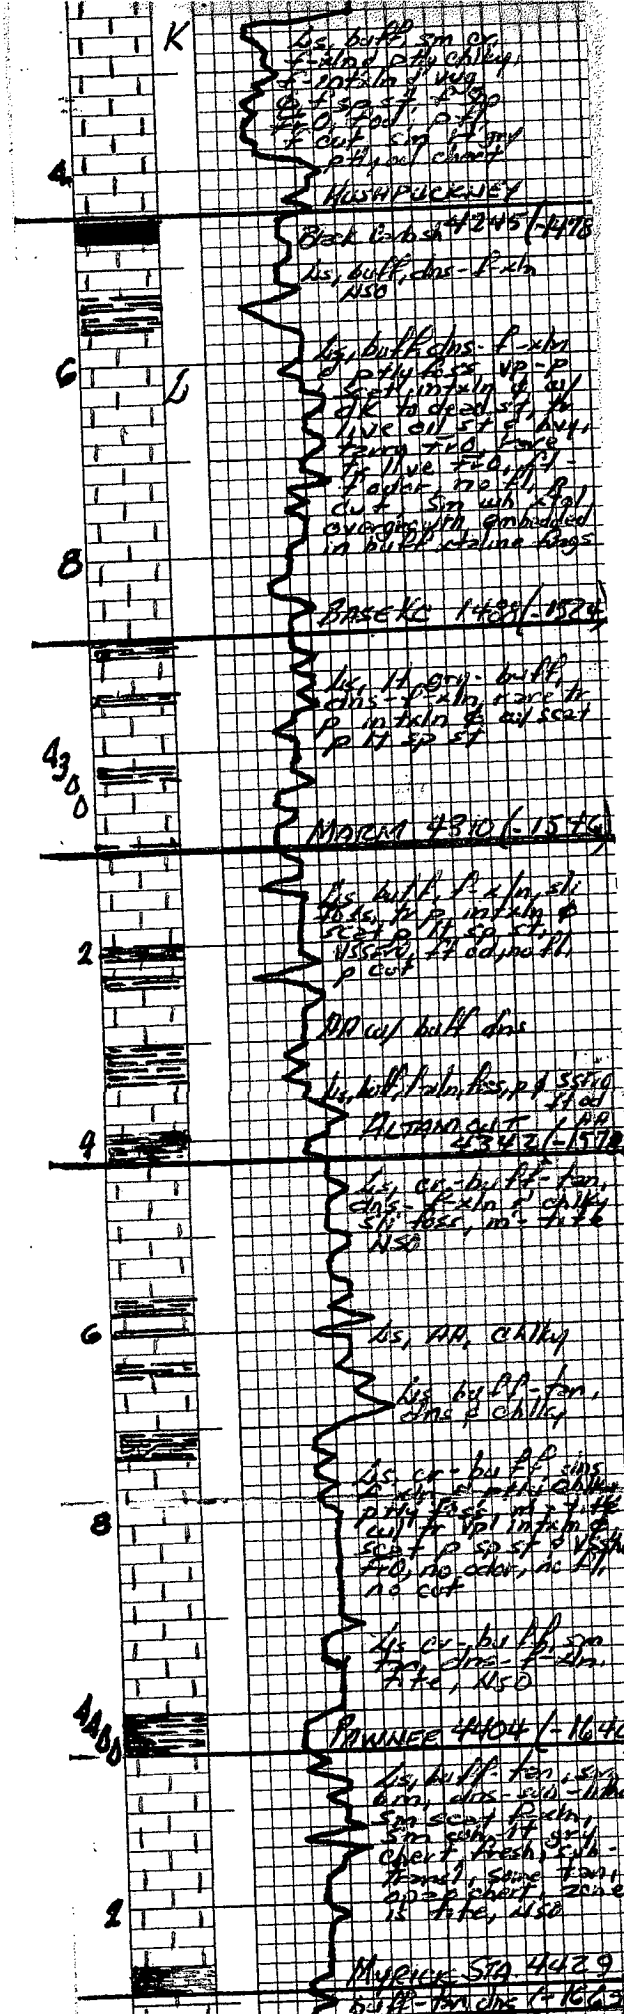 K
Ls, buff, sm cr,
f-xln & ptly chlky,
f-intxln & vug
φ f sp st, f sp
f cut, sm lt gry
ptly ool chert
4
HUSHPUCKNEY
Black Carb sh 4245 (-1478
Ls, buff, dns-f-xln
NSO
6
L
Ls, buff, dns-f-xln
& ptly foss vp-p
scat intxln φ w/
dk to dead st, tr
live oil st & hvy,
tarry FrO, rare
tr live FrO, ft-
f odor, no fl, p
cut, sm wh xtal
overgrowth embedded
in buff xtaline frags
8
BASE KC 1488 (-1524)
Ls, lt gry-buff,
dns-f-xln, rare tr
p intxln φ w/ scat
p lt sp st
4300
MARM 4310 (-1546)
Ls, buff, f-xln, sli
foss, tr p intxln φ
scat p lt sp st,
VSSFrO, ft od, no fl,
p cut
2
AA w/ buff dns
Ls, buff, f-xln, foss, p φ SSFrO
ft od
ALTAMONT AA
4342 (-1578
4
Ls, cr-buff-tan,
dns-f-xln & chlky
sli foss, m-tite
NSO
6
Ls, AA, chlky
Ls buff-tan,
dns & chlky
Ls, cr-buff, dns
f-xln & ptly chlky
ptly foss, m-tite
w/ tr vp intxln φ
scat p sp st & VSSFrO
FrO, no odor, no fl,
no cut
8
Ls cr-buff, sm
tan, dns-f-xln,
tite, NSO
4400
PAWNEE 4404 (-1640
Ls, buff-tan, sm
brn, dns-sub-litho
sm scat f-xln,
sm smh lt gry
chert, fresh, sub-
transl, some tan,
opaq chert, zone
is tite, NSO
2
MYRICK STA 4429
buff-tan dns (-1625